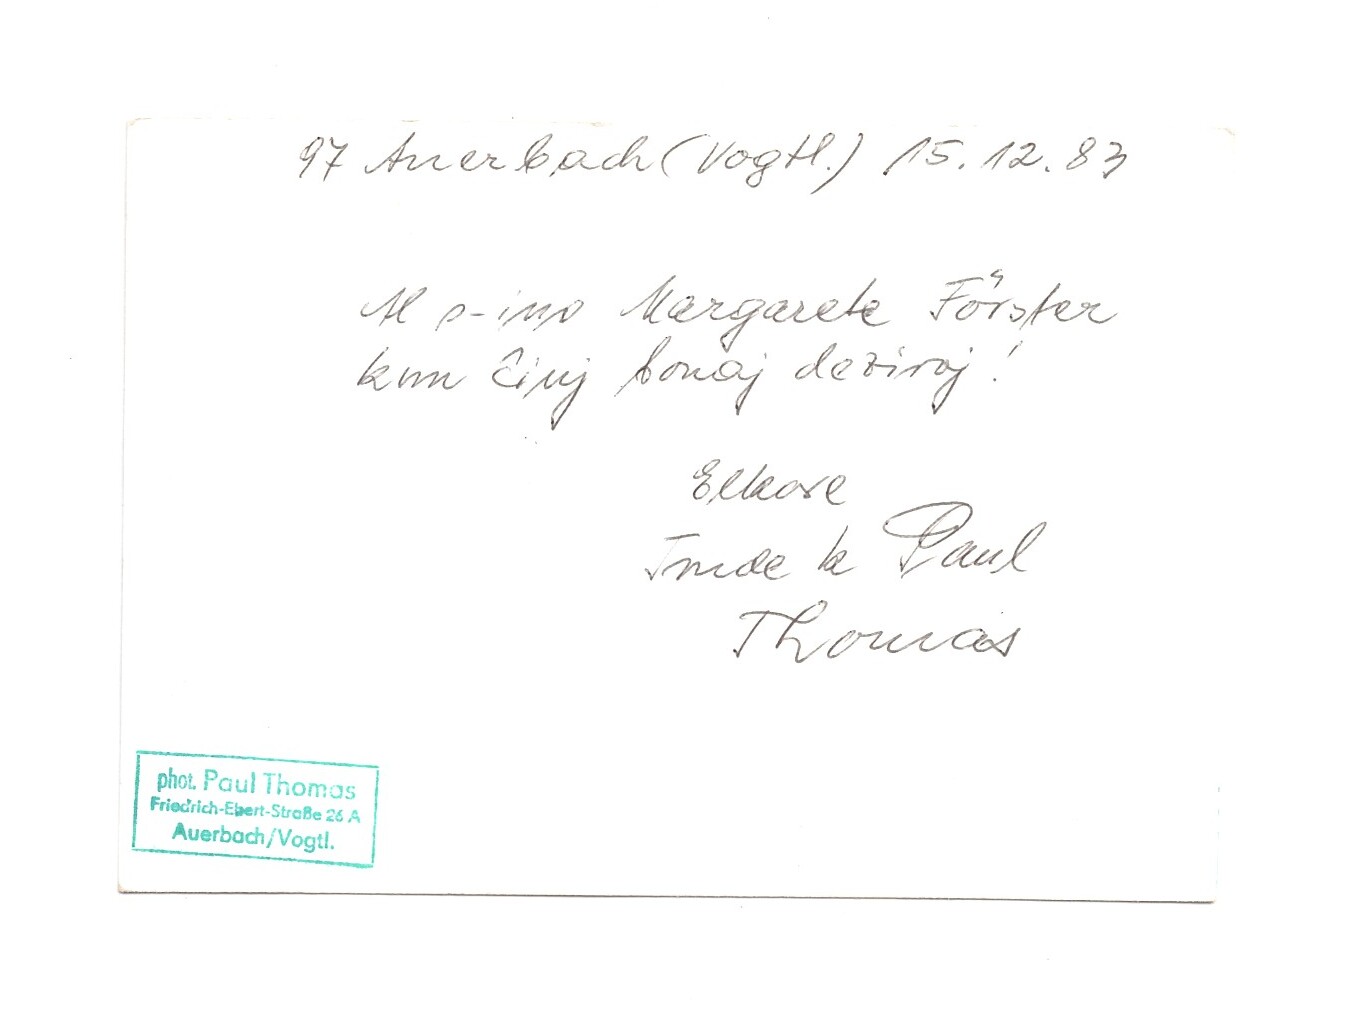 97 Auerbach (Vogtl.) 15.12.83
Al s-ino Margarete Förster
kun ĉiuj bonaj deziroj!
Elkore
Trude k Paul
Thomas
phot. Paul Thomas
Friedrich-Ebert-Straße 26 A
Auerbach/Vogtl.